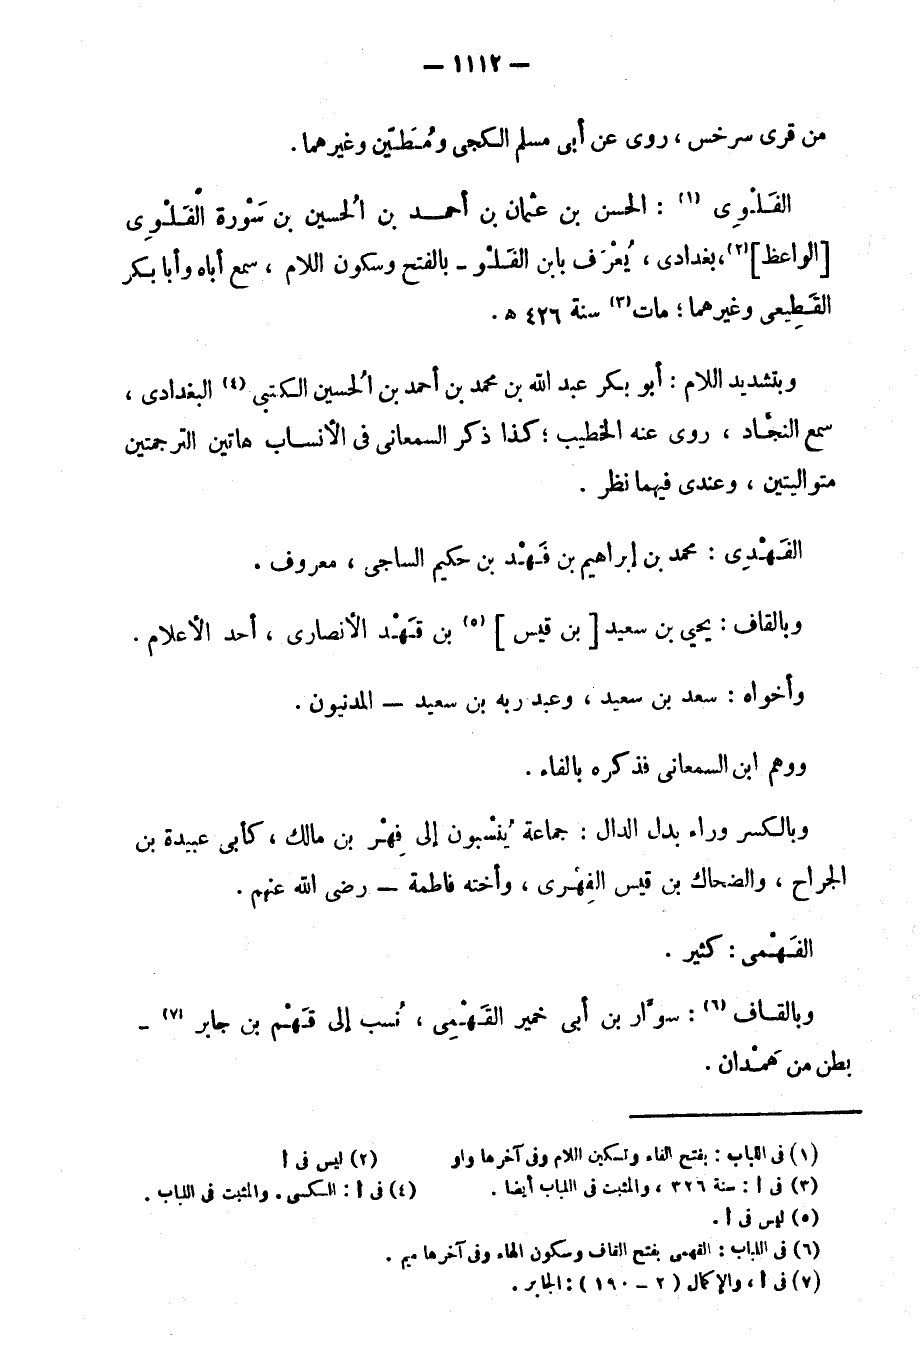 — ١١١٢ —
من قرى سرخس ، روى عن أبى مسلم الكجى ومُطَيَّن وغيرهما .
الفَلْوِى (١) : الحسن بن عثمان بن أحمد بن الحسين بن سَوْرة الْفَلْوِى
[الواعظ](٢)، بغدادى ، يُعْرَف بابن الفَلْو ـ بالفتح وسكون اللام ، سمع أباه وأبا بكر
القَطِيعى وغيرهما ؛ مات(٣) سنة ٤٢٦ ه .
وبتشديد اللام : أبو بكر عبد الله بن محمد بن أحمد بن الحسين الكتبى (٤) البغدادى ،
سمع النجَّاد ، روى عنه الخطيب ؛ كذا ذكر السمعانى فى الأنساب هاتين الترجمتين
متواليتين ، وعندى فيهما نظر .
الفَهْدِى : محمد بن إبراهيم بن فَهْد بن حكيم الساجى ، معروف .
وبالقاف : يحيى بن سعيد [ بن قيس ] (٥) بن قَهْد الأنصارى ، أحد الأعلام .
وأخواه : سعد بن سعيد ، وعبد ربه بن سعيد — المدنيون .
ووهم ابن السمعانى فذكره بالفاء .
وبالكسر وراء بدل الدال : جماعة يُنْسبون إلى فِهْر بن مالك ، كأبى عبيدة بن
الجراح ، والضحاك بن قيس الفِهْرى ، وأخته فاطمة — رضى الله عنهم .
الفَهْمى : كثير .
وبالقاف (٦) : سوَّار بن أبى خمير القَهْمِى ، نُسب إلى قَهْم بن جابر (٧) ـ
بطن من هَمْدان .
(١) فى اللباب : بفتح الفاء وتسكين اللام وفى آخرها واو (٢) ليس فى أ
(٣) فى أ : سنة ٣٢٦ ، والمثبت فى اللباب أيضا . (٤) فى أ : السكسى . والمثبت فى اللباب .
(٥) ليس فى أ .
(٦) فى اللباب : القهمى بفتح القاف وسكون الهاء وفى آخرها ميم .
(٧) فى أ ، والإكمال ( ٢ ـ ١٩٠ ) : الجابر .